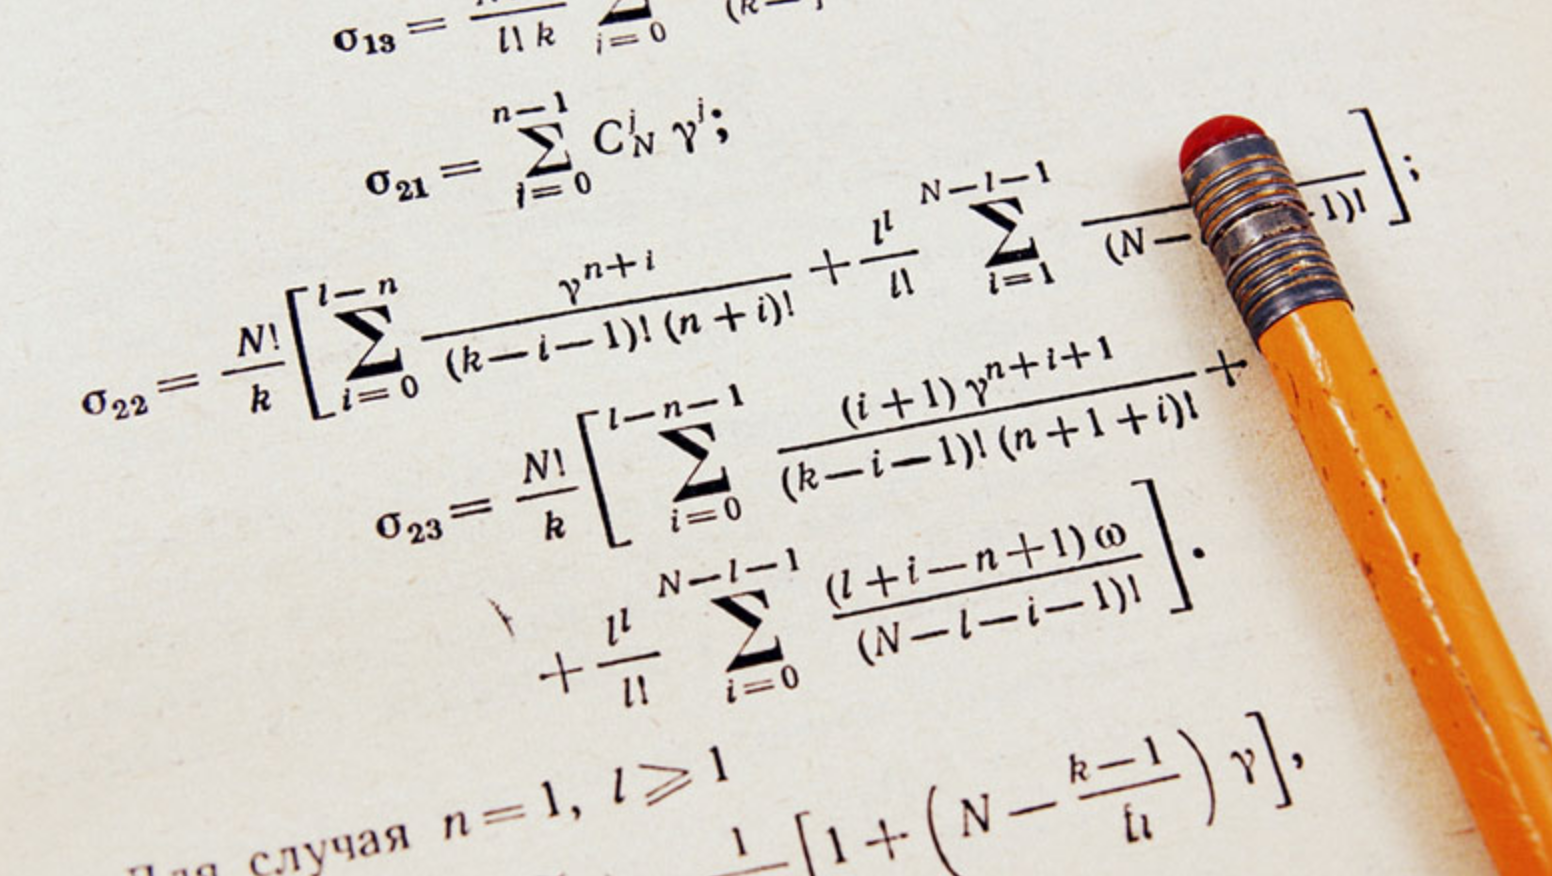 σ₁₃ = — / l! k ∑ i=0 (k—
σ₂₁ = ∑_{i=0}^{n—1} C_N^j γ^j;
σ₂₂ = N!/k [ ∑_{i=0}^{l—n} γ^{n+i} / (k—i—1)! (n+i)! + l^l/l! ∑_{i=1}^{N—l—1} / (N— 1)! ];
σ₂₃ = N!/k [ ∑_{i=0}^{l—n—1} (i+1) γ^{n+i+1} / (k—i—1)! (n+1+i)! +
+ l^l/l! ∑_{i=0}^{N—l—1} (l+i—n+1) ω / (N—l—i—1)! ].
Для случая n=1, l⩾1
1 [1 + (N — k—1 / ) γ],